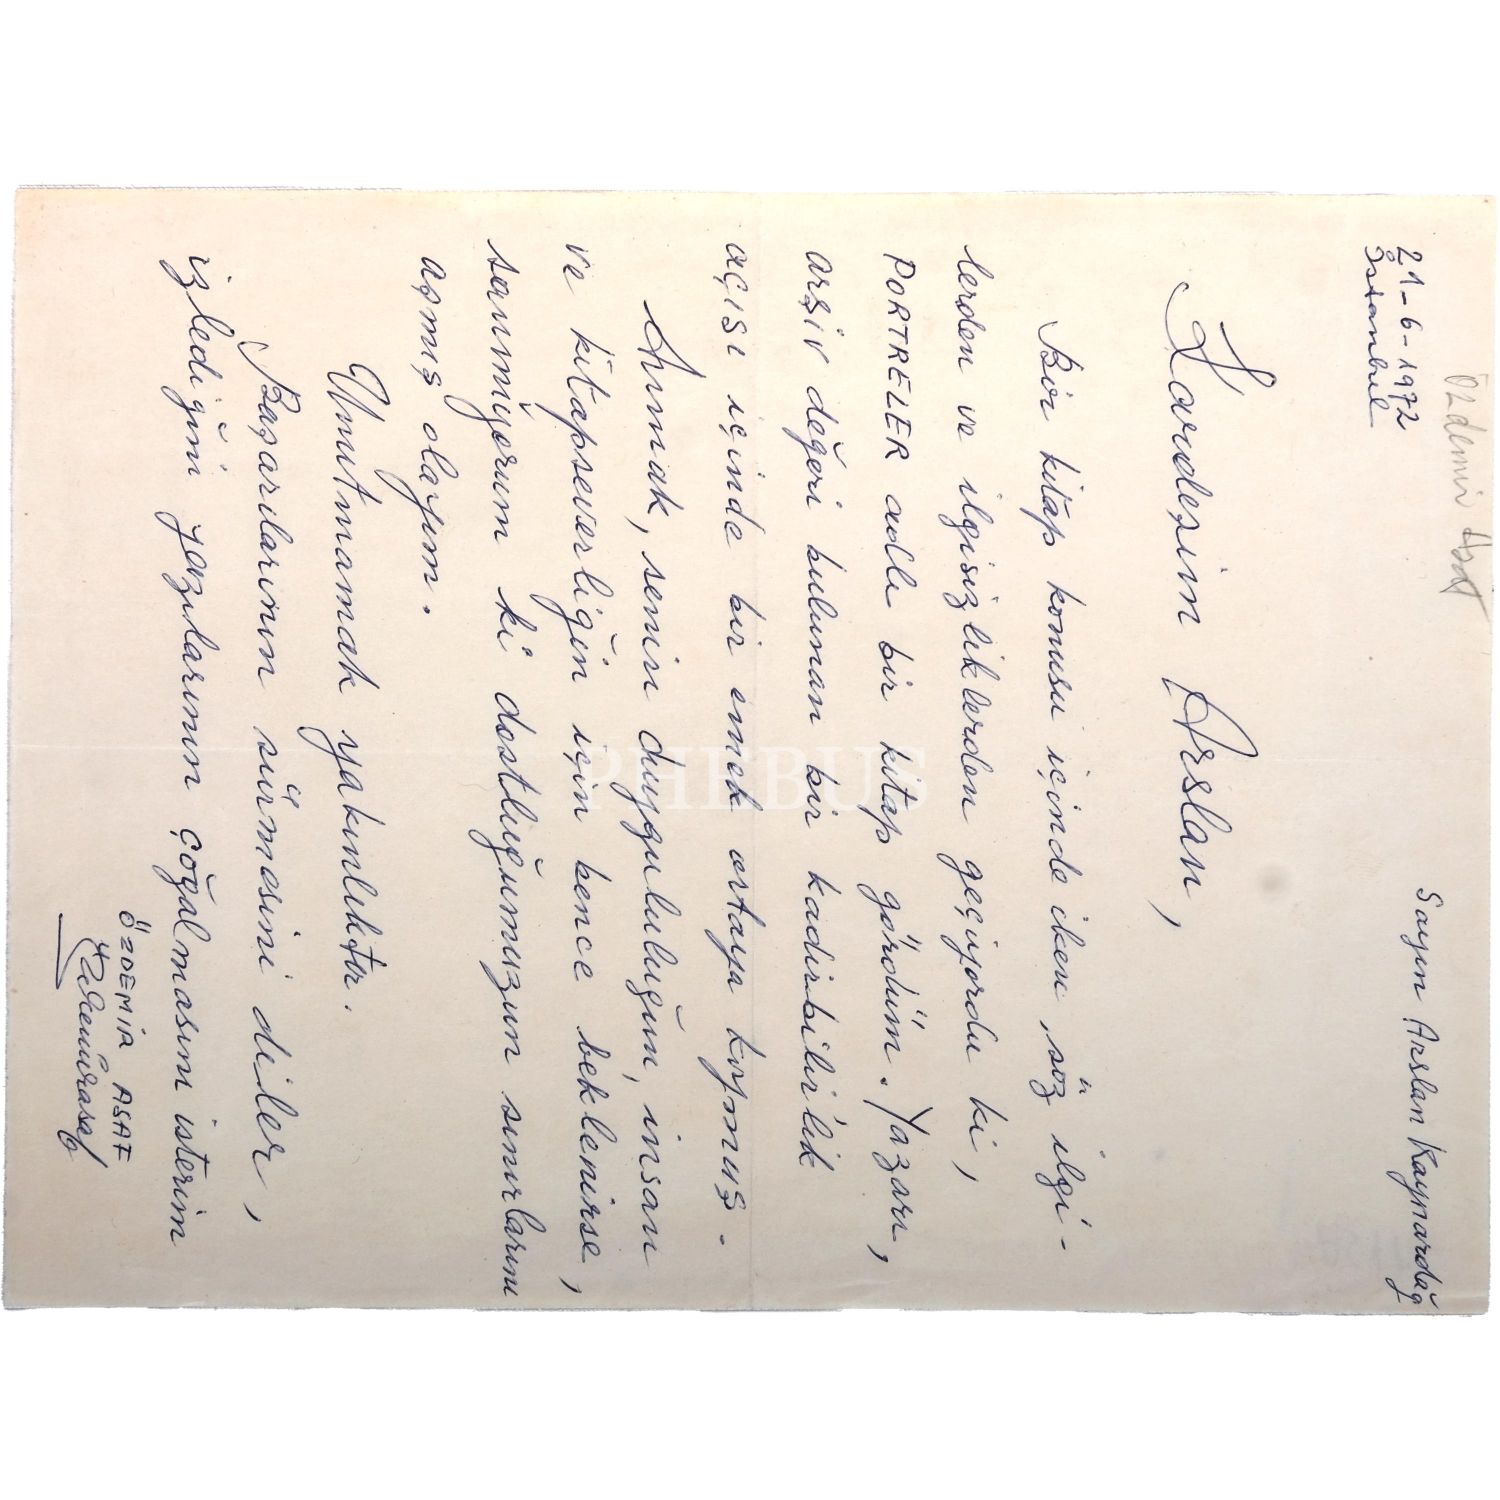 Özdemir Asaf
21-6-1972
İstanbul
Sayın Arslan Kaynardağ
Kardeşim Arslan,
Bir kitap konusu içinde iken, söz ilgi-
lerden ve ilgisizliklerden geçiyordu ki,
PORTRELER adlı bir kitap gördüm. Yazarı,
arşiv değeri bulunan bir kadirbilirlik
açısı içinde bir emek ortaya koymuş.
Anmak, senin duygululuğun, insan
ve kitapseverliğin için bence beklenirse,
sanmıyorum ki dostluğumuzun sınırlarını
aşmış olayım.
Unutmamak yakınlıktır.
Başarılarının sürmesini diler,
izlediğim yazılarının çoğalmasını isterim
ÖZDEMİR ASAF
Özdemirasaf
PHEBUS